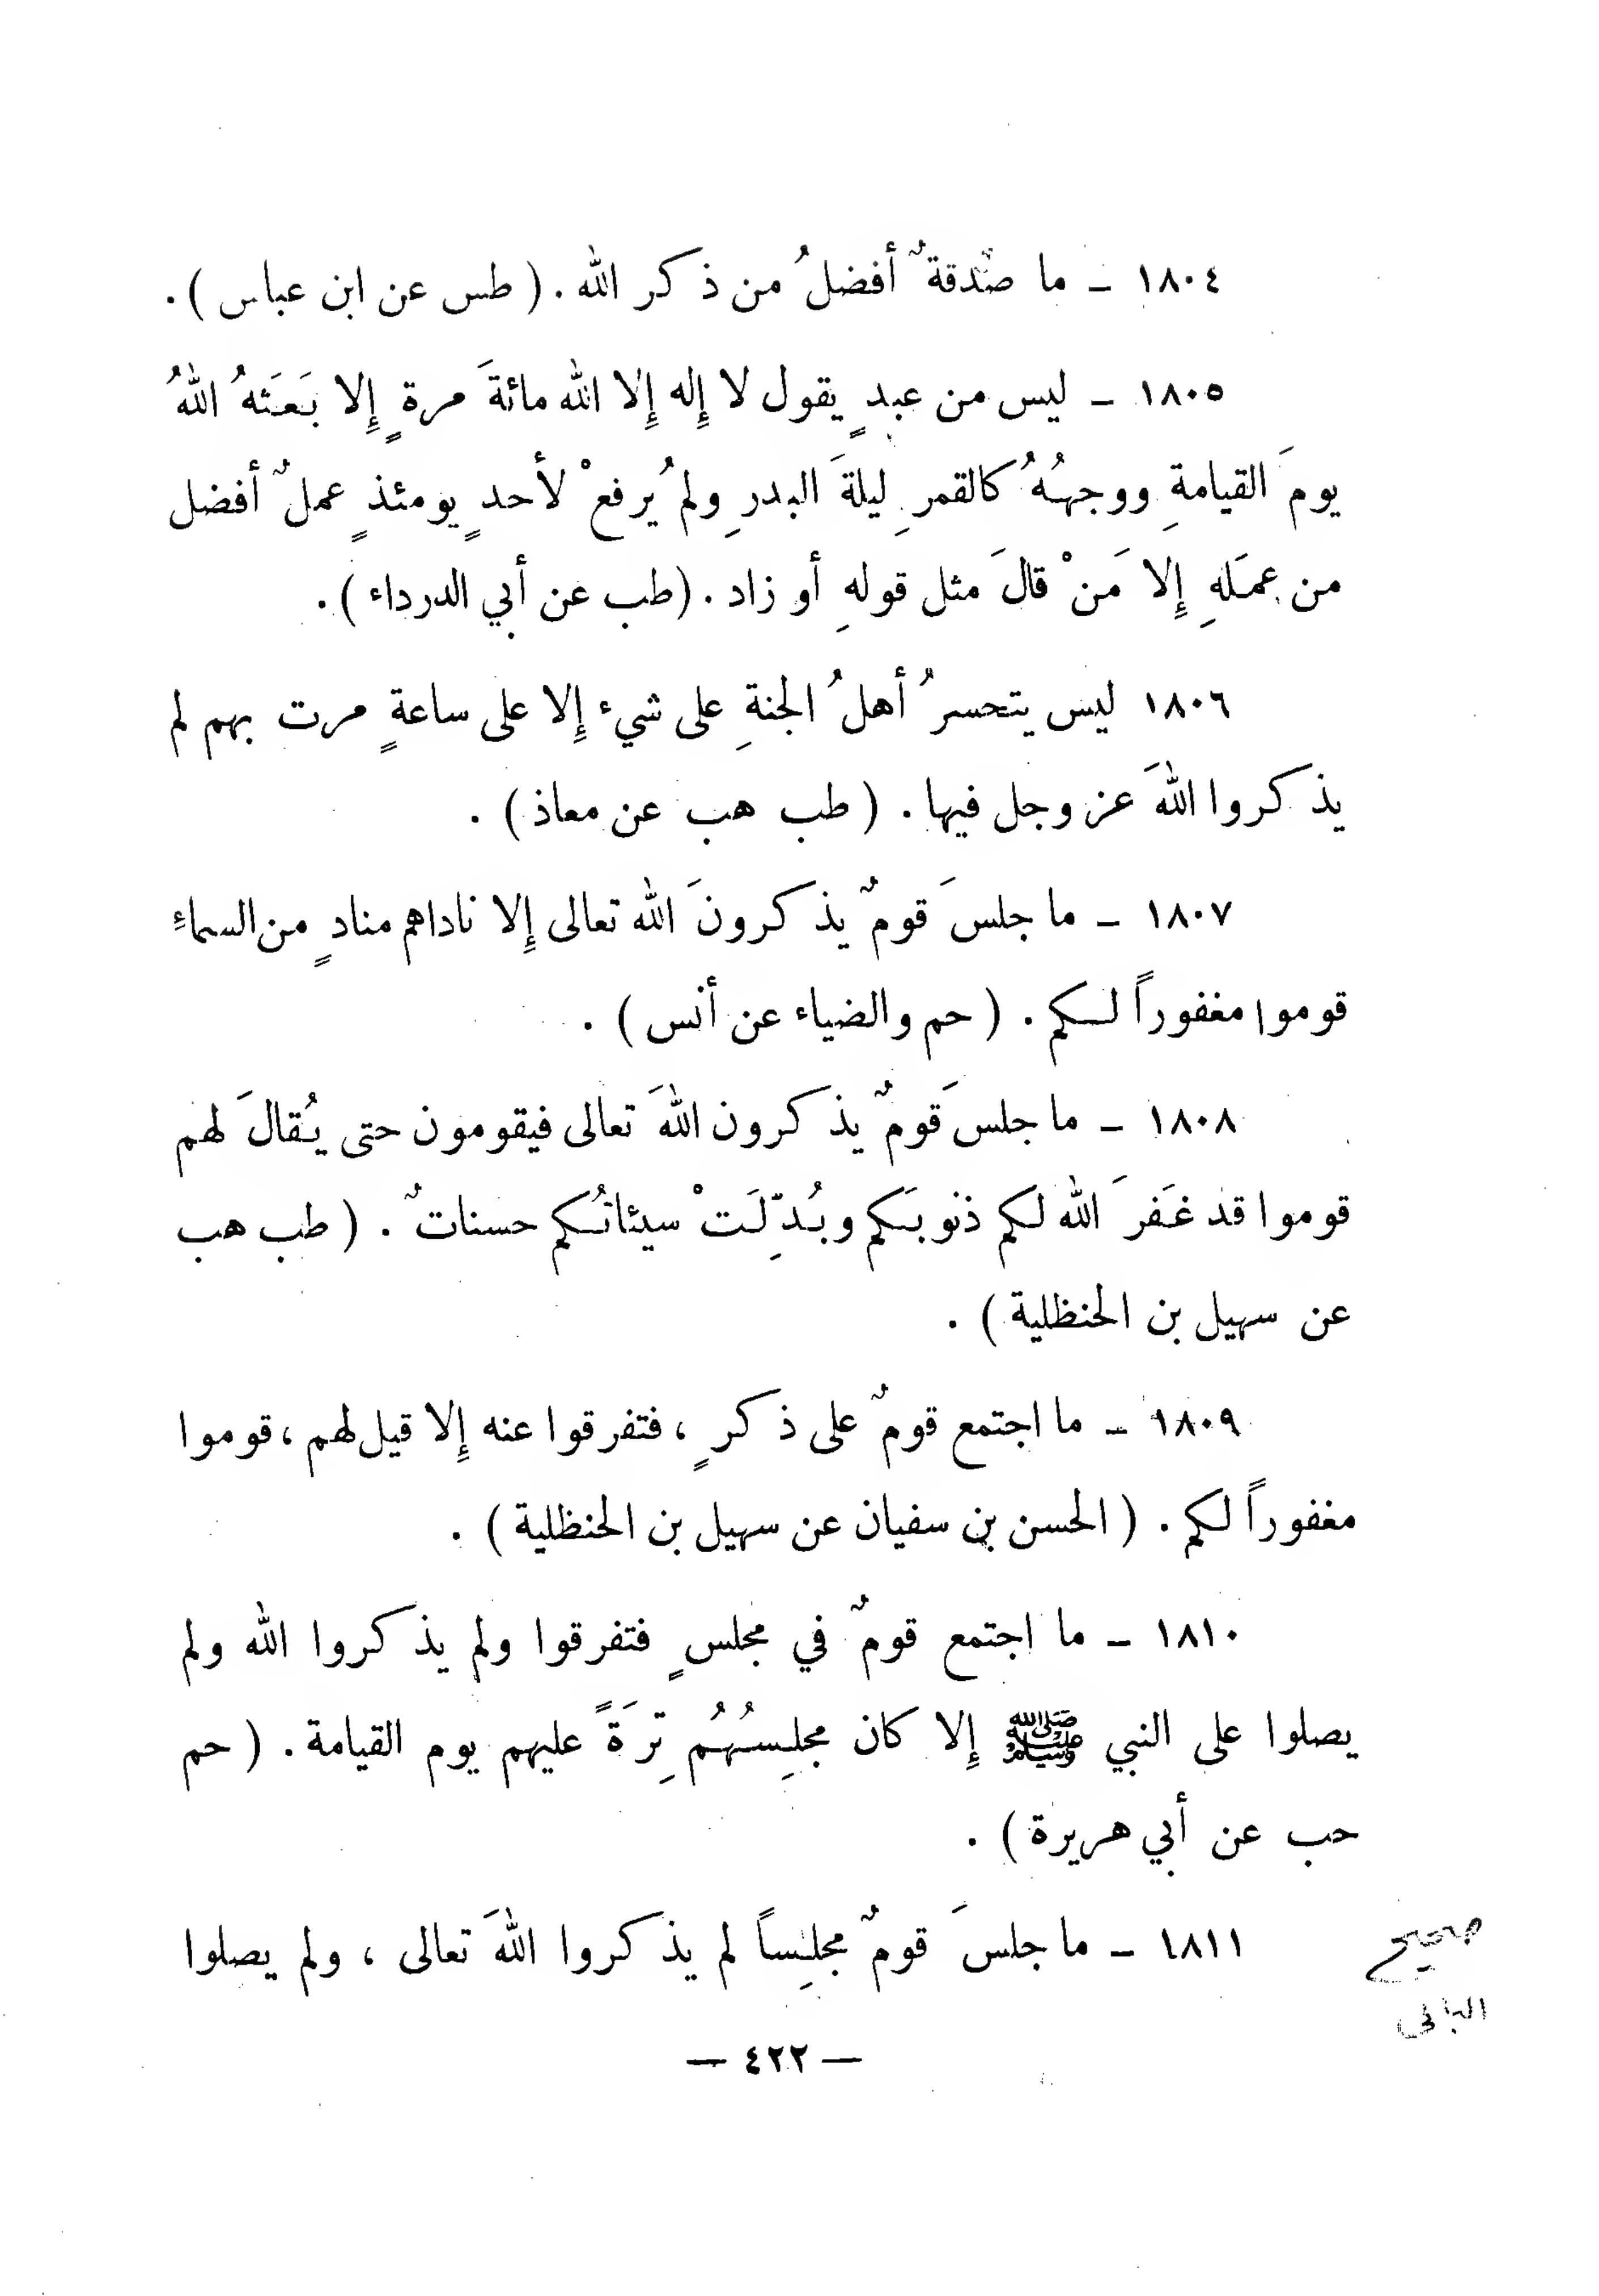 ١٨٠٤ ـ ما صدقةٌ أفضلُ من ذكر الله . ( طس عن ابن عباس ) .
١٨٠٥ ـ ليس من عبدٍ يقول لا إله إلا الله مائةَ مرةٍ إلا بَعَثَهُ اللهُ
يومَ القيامةِ ووجههُ كالقمرِ ليلةَ البدرِ ولم يُرفعْ لأحدٍ يومئذٍ عملٌ أفضل
من عمَلهِ إلا مَنْ قالَ مثل قولهِ أو زاد . ( طب عن أبي الدرداء ) .
١٨٠٦ ليس يتحسرُ أهلُ الجنةِ على شيء إلا على ساعةٍ مرت بهم لم
يذكروا اللهَ عز وجل فيها . ( طب هب عن معاذ ) .
١٨٠٧ ـ ما جلسَ قومٌ يذكرونَ الله تعالى إلا ناداهم منادٍ من السماءِ
قوموا مغفوراً لكم . ( حم والضياء عن أنس ) .
١٨٠٨ ـ ما جلسَ قومٌ يذكرون اللهَ تعالى فيقومون حتى يُقالَ لهم
قوموا قد غَفرَ الله لكم ذنوبَكم وبُدِّلَتْ سيئاتُكم حسناتٌ . ( طب هب
عن سهيل بن الحنظلية ) .
١٨٠٩ ـ ما اجتمع قومٌ على ذكرٍ ، فتفرقوا عنه إلا قيل لهم ، قوموا
مغفوراً لكم . ( الحسن بن سفيان عن سهيل بن الحنظلية ) .
١٨١٠ ـ ما اجتمع قومٌ في مجلسٍ فتفرقوا ولم يذكروا الله ولم
يصلوا على النبي ﷺ إلا كان مجلِسُهُم تِرَةً عليهم يوم القيامة . ( حم
حب عن أبي هريرة ) .
١٨١١ ـ ما جلسَ قومٌ مجلِساً لم يذكروا اللهَ تعالى ، ولم يصلوا
صحيح
— ٤٢٢ —